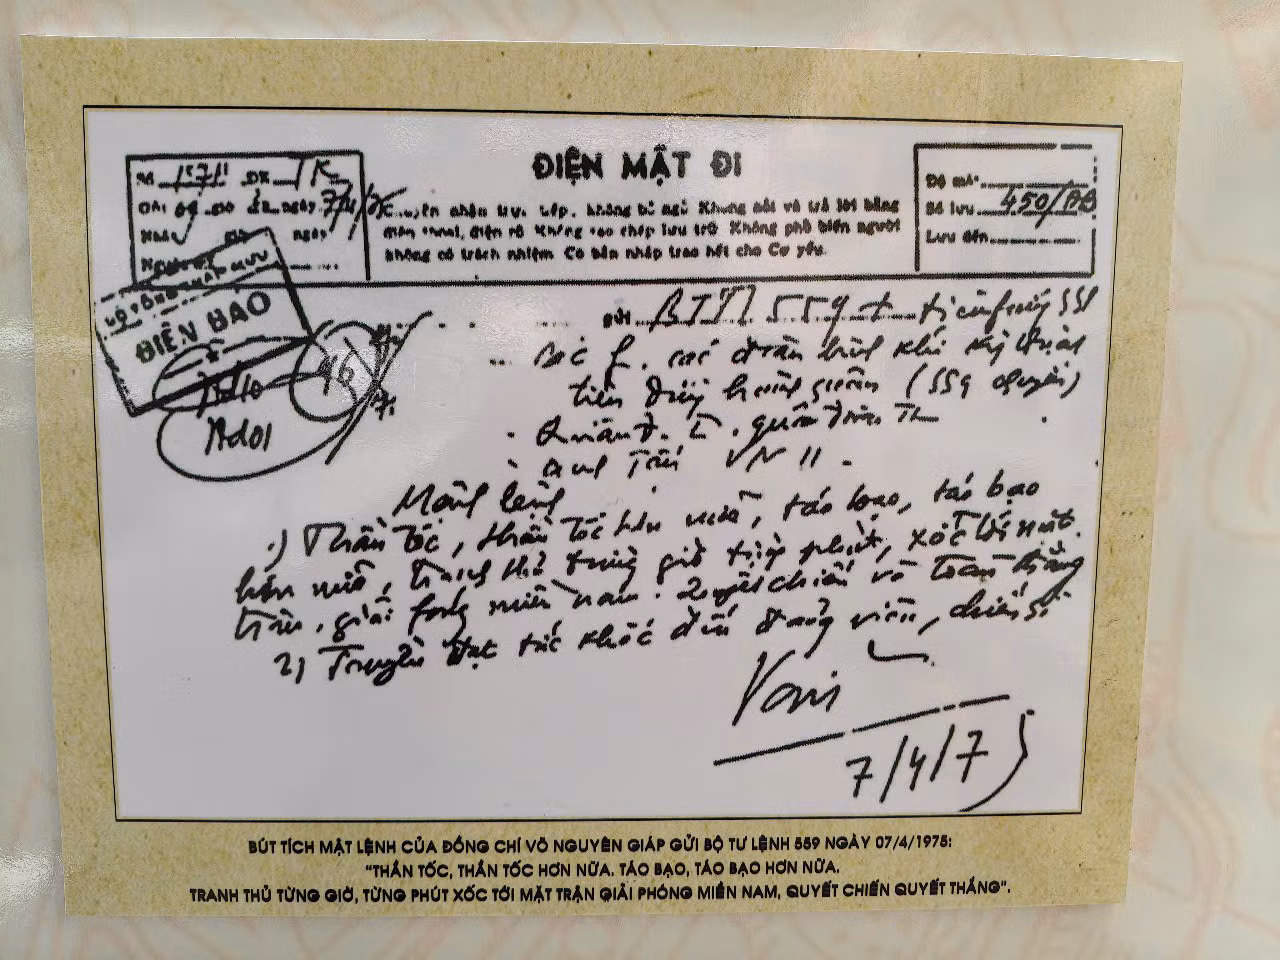 ĐIỆN MẬT ĐI
Số 1574 ĐK TK
Chuyển nhận trực tiếp, không bỏ ngỏ Không nói và trả lời bằng
điện thoại, điện rõ Không sao chép lưu trữ Không phổ biến người
không có trách nhiệm Có bản nhập trao hết cho Cơ yếu.
Độ mật
Số lưu 450/ĐB
Lưu đến
BỘ TỔNG THAM MƯU
ĐIỆN BÁO
46
Ad01
gửi BTTL 559 +
các đơn binh khí kỹ thuật
tiến hành quân (559 chuyển)
Quân đ.
Mệnh lệnh
1) Thần tốc, thần tốc hơn nữa, táo bạo, táo bạo
hơn nữa, tranh thủ từng giờ từng phút, xốc tới mặt
trận, giải fóng miền nam. Quyết chiến và toàn thắng
2) Truyền đạt tức khắc đến đảng viên, chiến sĩ
Văn
7/4/75
BÚT TÍCH MẬT LỆNH CỦA ĐỒNG CHÍ VÕ NGUYÊN GIÁP GỬI BỘ TƯ LỆNH 559 NGÀY 07/4/1975:
"THẦN TỐC, THẦN TỐC HƠN NỮA. TÁO BẠO, TÁO BẠO HƠN NỮA.
TRANH THỦ TỪNG GIỜ, TỪNG PHÚT XỐC TỚI MẶT TRẬN GIẢI PHÓNG MIỀN NAM, QUYẾT CHIẾN QUYẾT THẮNG".